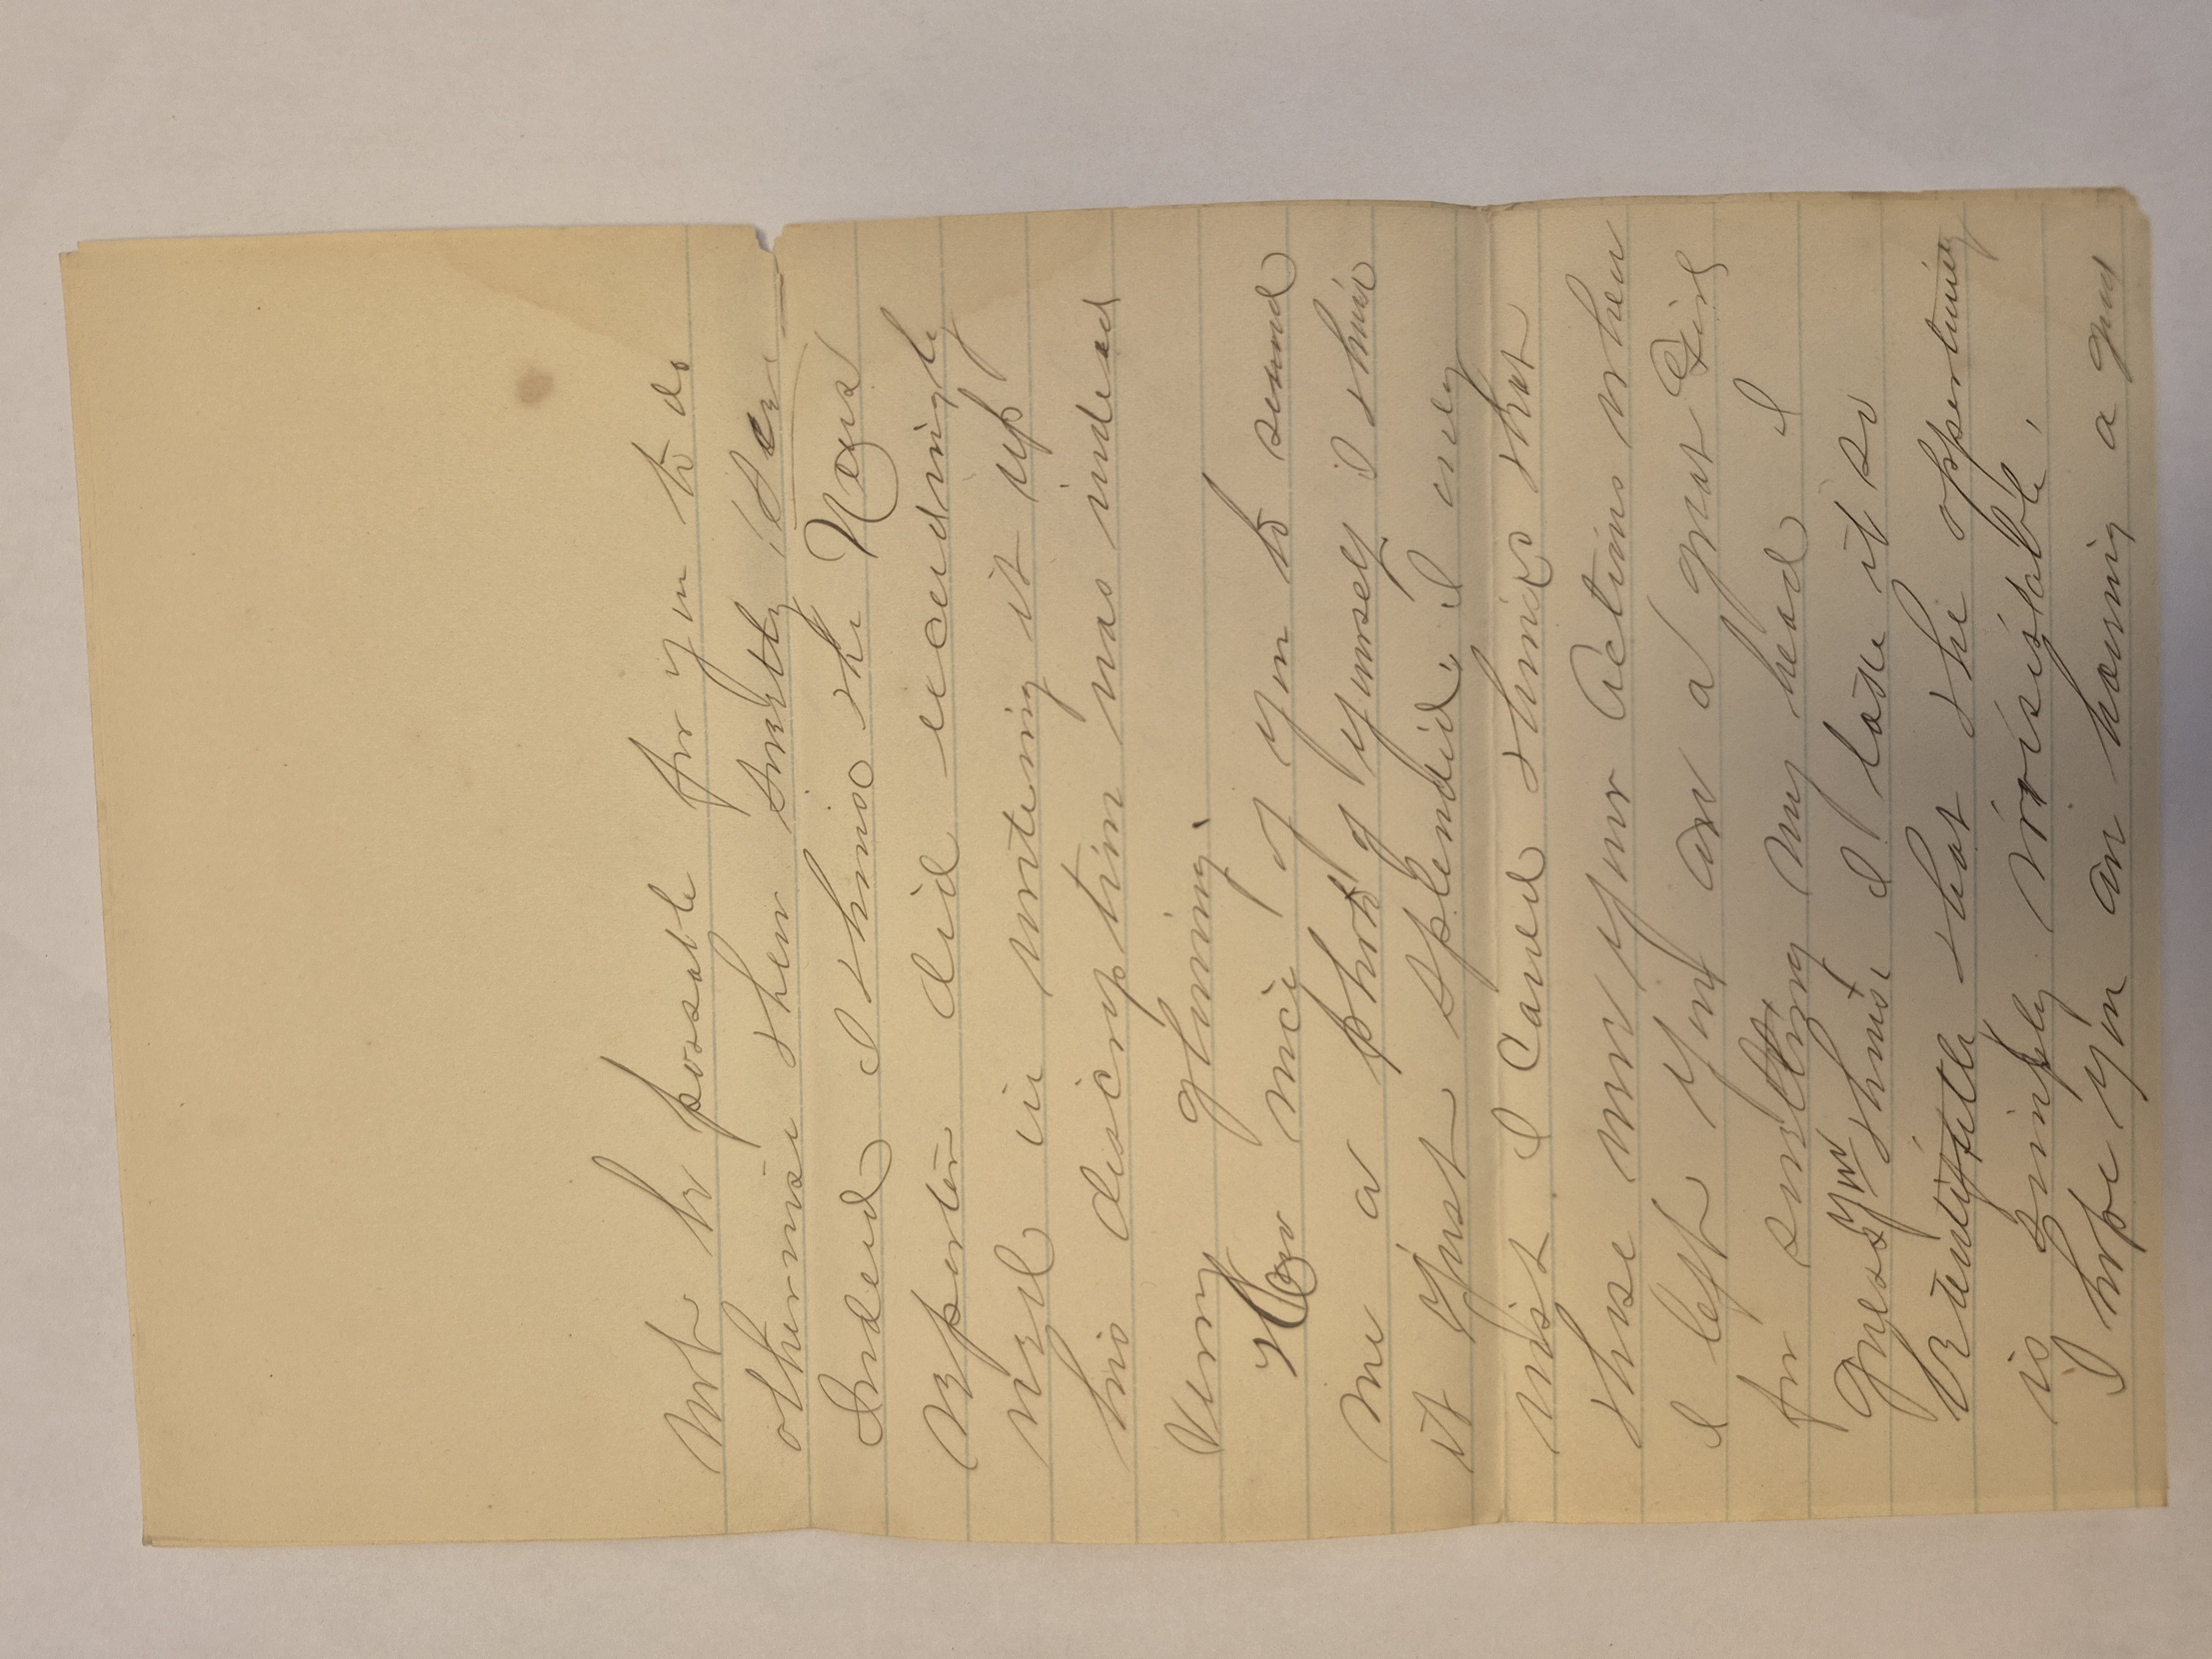 not be possable for you to do
otherwise then sweetly
Indeed I think the News
reporter did exceedingly
well in writeing it up
his discription was indead
Very glowing.
How nice of you to send
me a photo of yourself I think
it Just splendid, I only
wist I Could think that
those were your Actions when
I left You are a great Girl
for swelling my head I
guess you think I take it so
beautifull that the oppertunity
is simply irrisistable.
I hope you are having a good